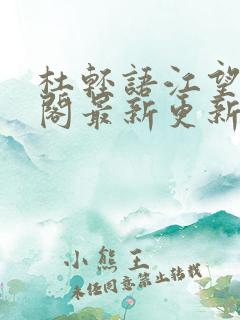 杜輕語江望
閣最新更新
小熊王
未经同意禁止转载